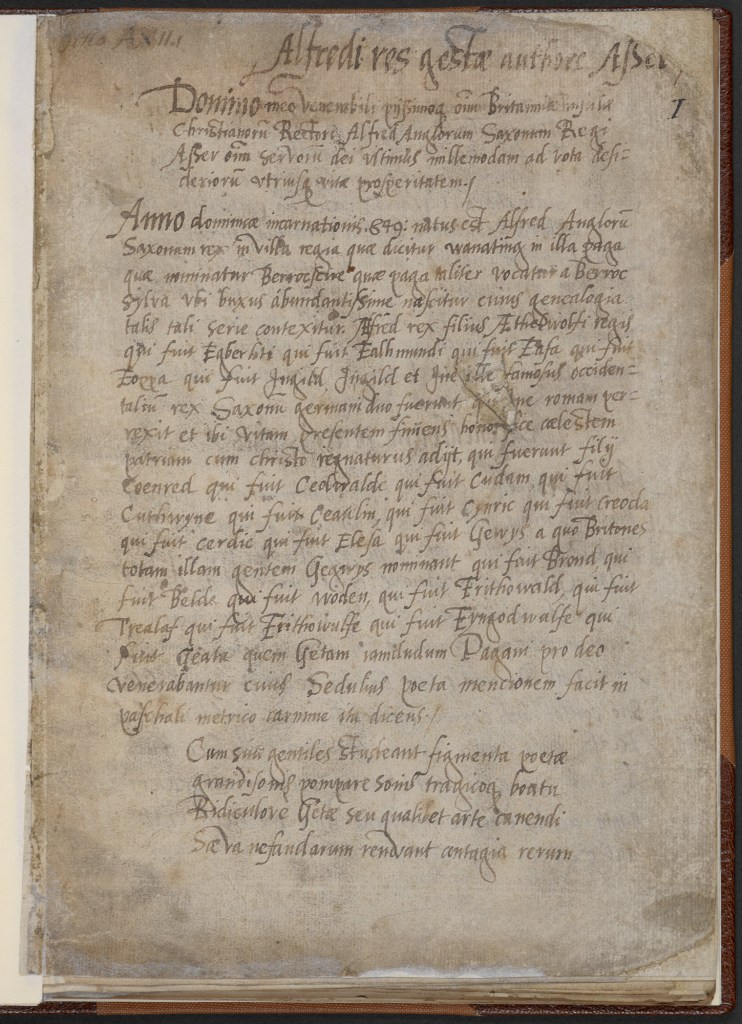 Otho A XII.
Alfredi res gestæ authore Asser
1
Domino meo venerabili piissimoq̨ oīm Britanniæ insulæ
Christianorū Rectori, Alfred, Anglorum Saxonum Regi
Asser oīm servorū dei vltimus millemodam ad vota desi-
deriorū vtriusq̨ vitæ prosperitatem./
Anno dominicæ incarnationis .849. natus est Alfred Anglorū
Saxonum rex in villa regia quæ dicitur wanating in illa paga
quæ nominatur Berrocscire quæ paga taliter vocatur a Berroc
sylva vbi buxus abundantissime nascitur cuius genealogia
talis tali serie contexitur. Ælfred rex filius Æthelwolfi regis
qui fuit Egberhti qui fuit Ealhmundi qui fuit Eafa qui fuit
Eoppa qui fuit Ingild. Ingild et Ine ille famosus occiden-
taliū rex Saxonū germani duo fuerunt qui Ine romam per-
rexit et ibi vitam presentem finiens honorifice cælestem
patriam cum christo regnaturus adijt, qui fuerunt filij
Coenred qui fuit Ceolwalde qui fuit Cudam qui fuit
Cuthwyne qui fuit Ceaulin, qui fuit Cynric qui fuit creoda
qui fuit cerdic qui fuit Elesa qui fuit Gewys a quo Britones
totam illam gentem Gegwys nominant qui fuit Brond, qui
fuit Belde qui fuit woden, qui fuit Frithowald, qui fuit
Frealaf qui fuit Frithowulfe qui fuit Fyngodwulfe qui
fuit Geata quem Getam iamdudum Pagani pro deo
venerabantur cuius Sedulius poeta mencionem facit in
paschali metrico carmine ita dicens /
Cum sua gentiles studeant figmenta poetæ
grandisonis pompare sonis tragicoq̨ boatu
Ridiculove Getæ seu qualibet arte canendi
Sæva nefandarum renovant contagia rerum